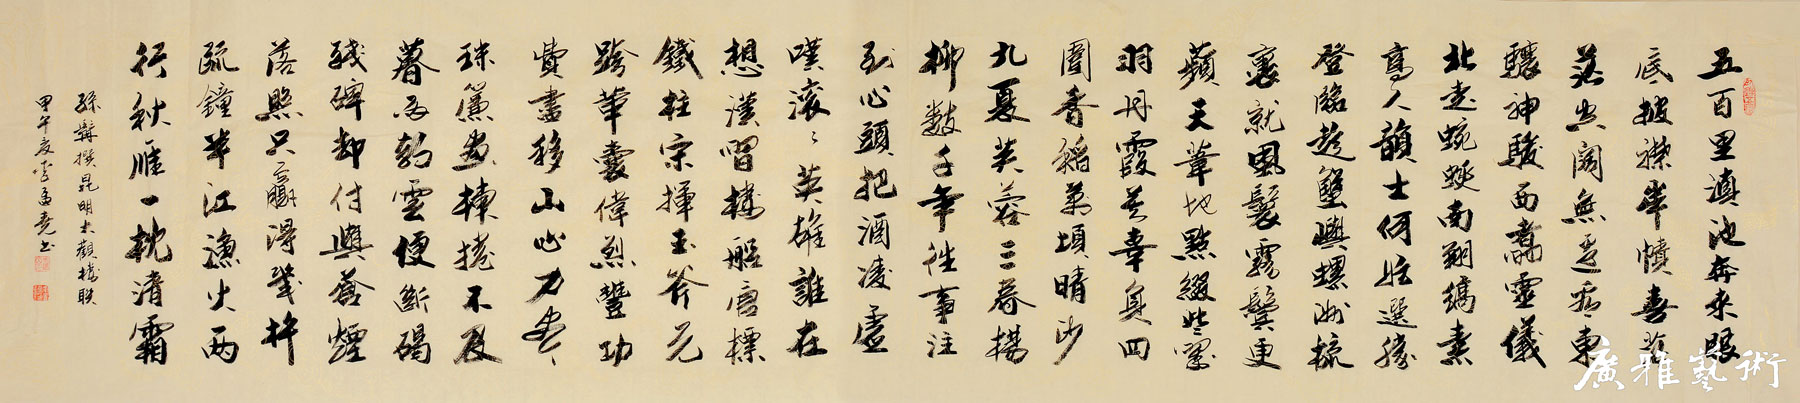 五百里滇池奔来眼
底披襟岸幘喜茫
茫空闊無邊看東
驤神駿西翥靈儀
北走蜿蜒南翔縞素
高人韻士何妨選勝
登臨趁蟹嶼螺洲梳
裹就風鬟霧鬢更
蘋天葦地點綴些翠
羽丹霞莫辜負四
圍香稻萬頃晴沙
九夏芙蓉三春楊
柳數千年往事注
到心頭把酒凌虛
嘆滾〻英雄誰在
想漢習樓船唐標
鐵柱宋揮玉斧元
跨革囊偉烈豐功
費盡移山心力尽
珠簾畫棟捲不及
暮雨朝雲便斷碣
殘碑都付與蒼煙
落照只贏得幾杵
疏鐘半江漁火兩
行秋雁一枕清霜
孫髯撰昆明大觀樓联
甲午夏李書
廣雅藝術